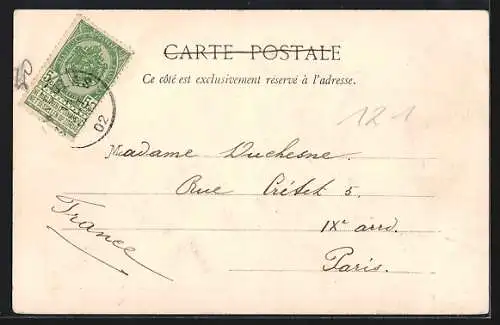 CARTE POSTALE
Ce côté est exclusivement réservé à l'adresse.
121
Madame Duchesne.
Rue Crétet 5.
IXe arrd.
Paris.
France
5 5
02